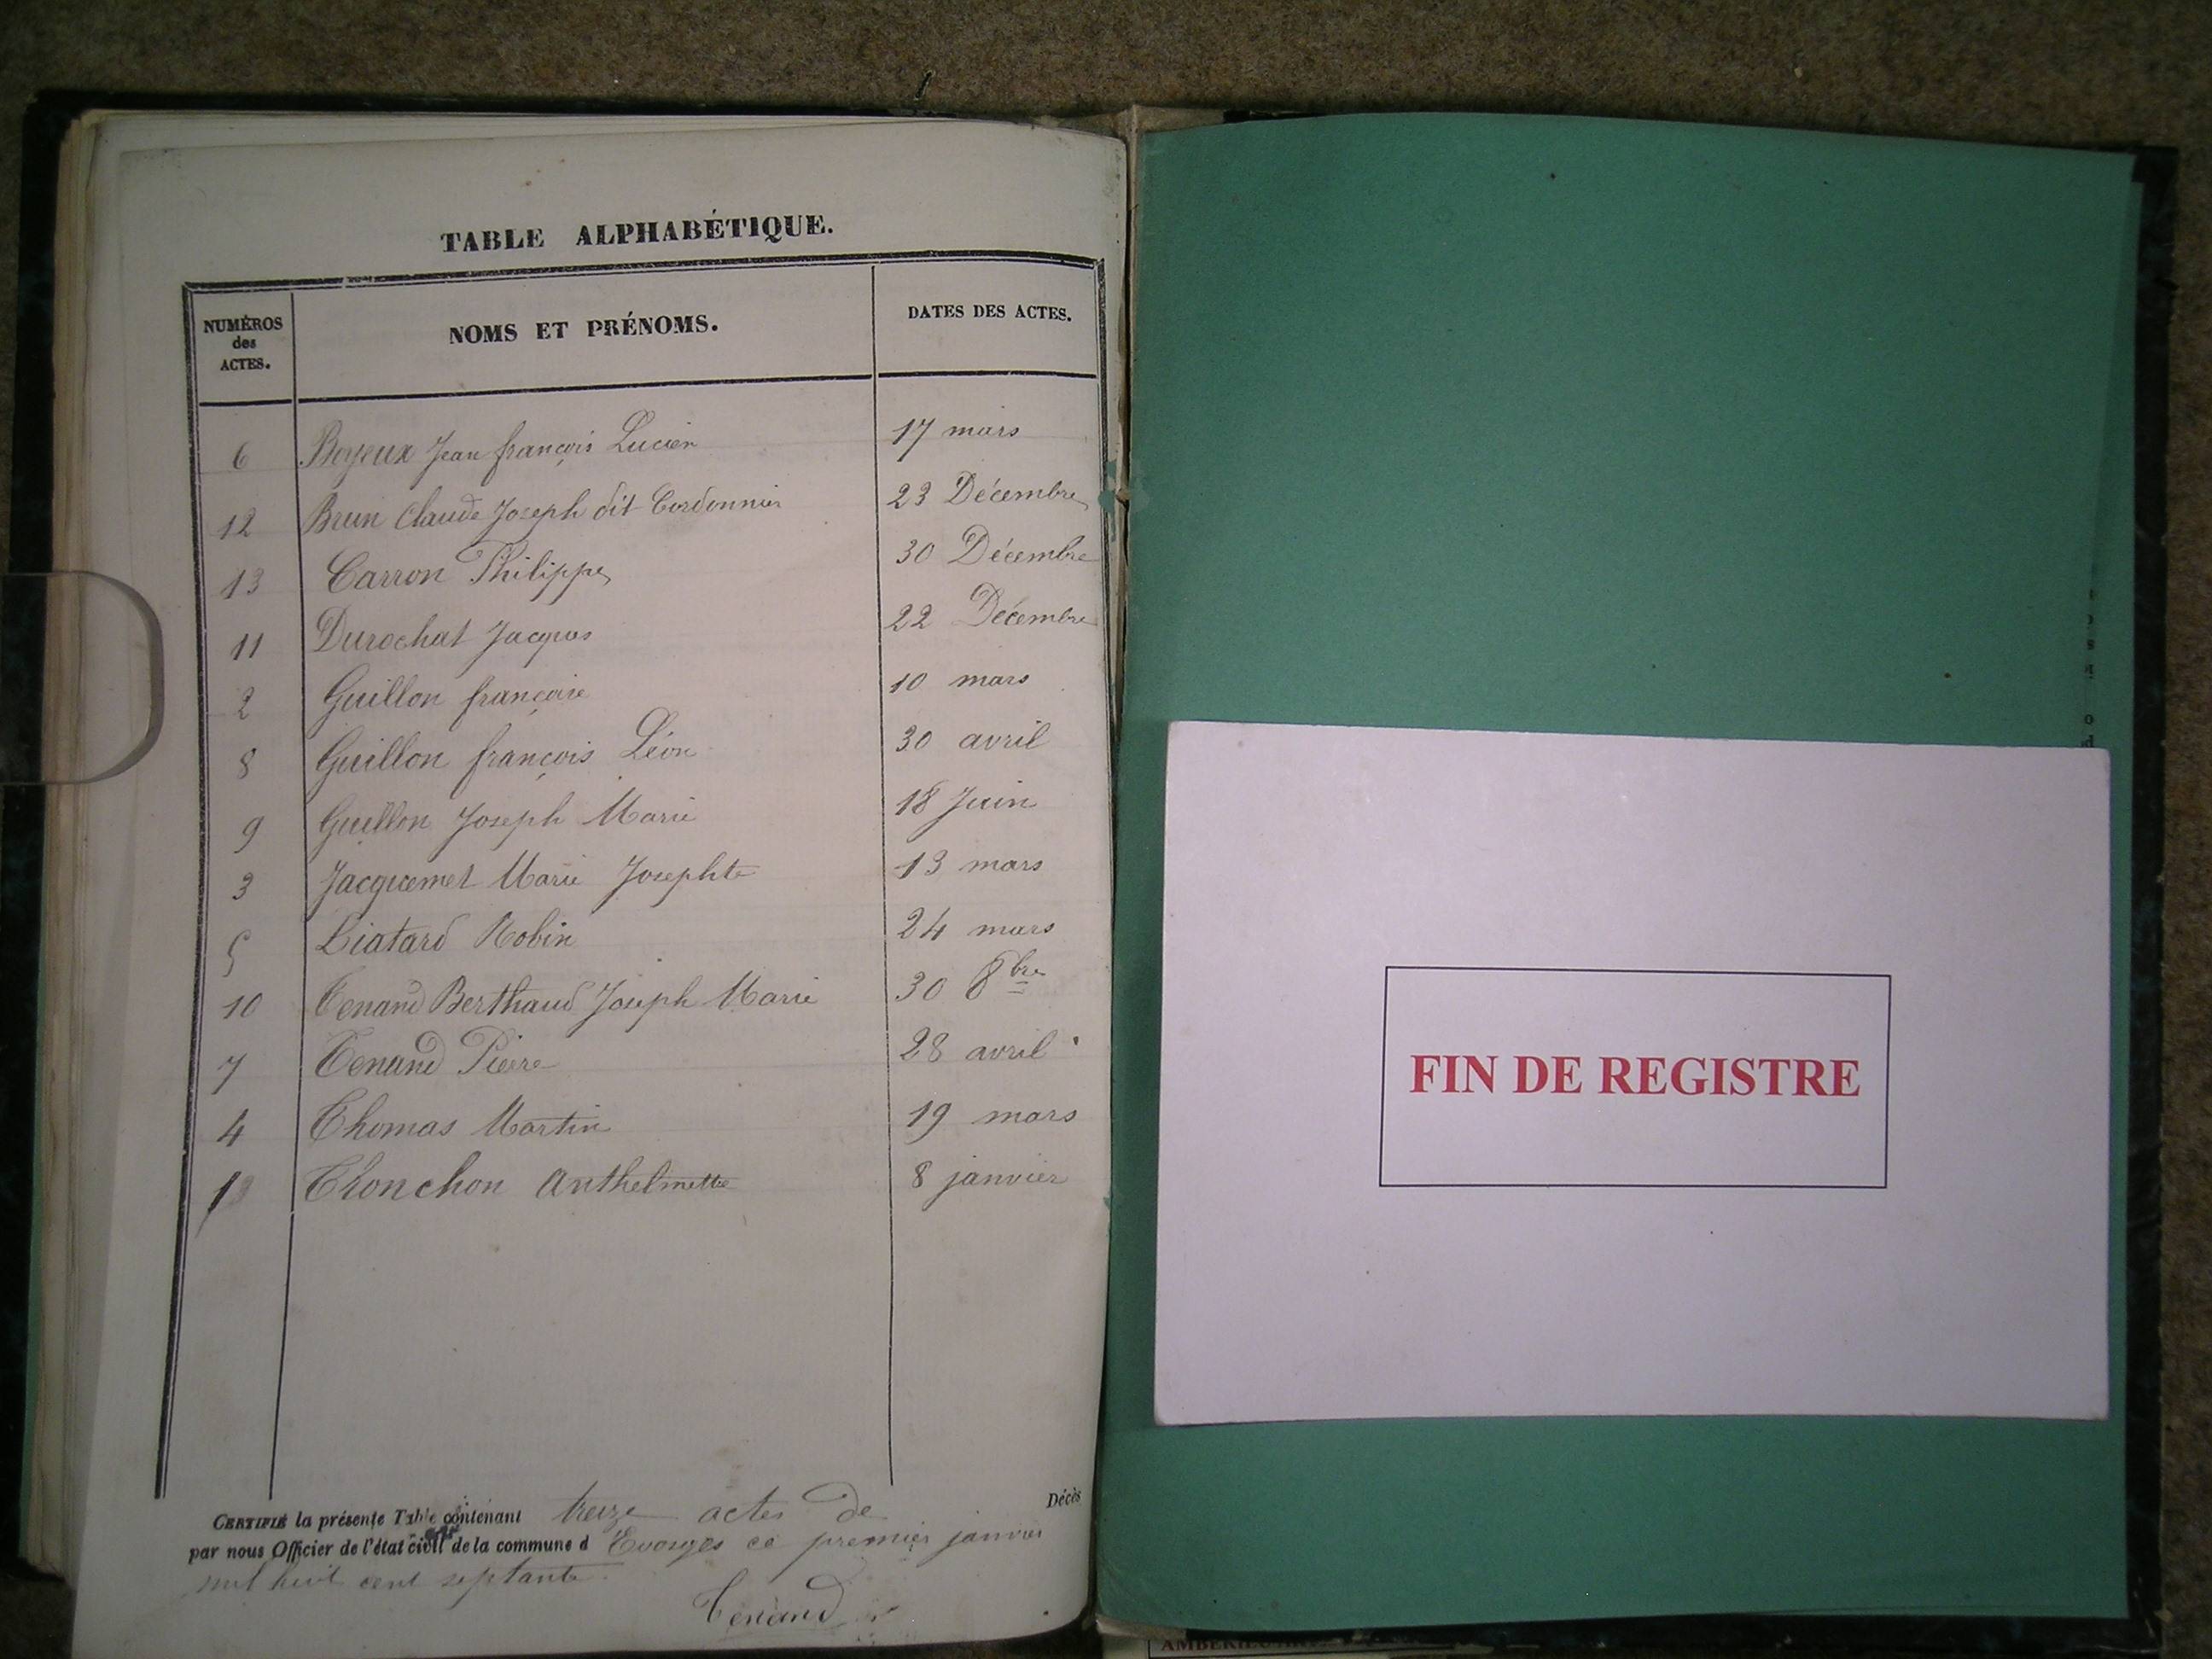 TABLE ALPHABÉTIQUE.
NUMÉROS des ACTES. NOMS ET PRÉNOMS. DATES DES ACTES.
6 Boyeux Jean françois Lucien 17 mars
12 Brun Claude Joseph dit Cordonnier 23 Décembre
13 Carron Philippe 30 Décembre
11 Durochat Jacques 22 Décembre
2 Guillon françoise 10 mars
8 Guillon françois Léon 30 avril
9 Guillon Joseph Marie 18 Juin
3 Jacquemet Marie Josephte 13 mars
5 Liatard Robin 24 mars
10 Tenand Berthaud Joseph Marie 30 8bre
7 Tenand Pierre 28 avril
4 Thomas Martin 19 mars
1 Thonchon Anthelmette 8 janvier
CERTIFIÉ la présente Table contenant treize actes de Décès
par nous Officier de l'état civil de la commune d Evosges ce premier janvier
mil huit cent septante.
Tenand
FIN DE REGISTRE